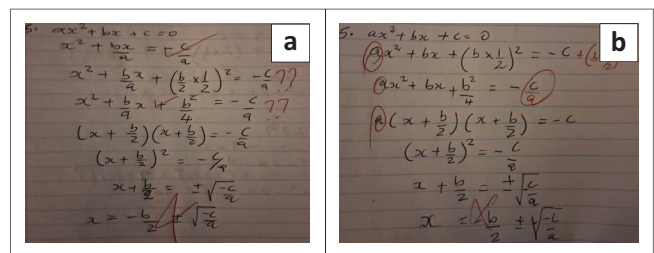 a
5. ax² + bx + c = 0
x² + bx/a = - c/a
x² + b/a x + (b/2 × 1/2)² = - c/a ??
x² + b/a x + b²/4 = - c/a ??
(x + b/2)(x + b/2) = - c/a
(x + b/2)² = - c/a
x + b/2 = ± √-c/a
x = - b/2 ± √-c/a
b
5. ax² + bx + c = 0
ax² + bx + (b × 1/2)² = - c + (b
ax² + bx + b²/4 = - c/a
a(x + b/2)(x + b/2) = - c
(x + b/2)² = - c/a
x + b/2 = ± √c/a
x = - b/2 ± √-c/a